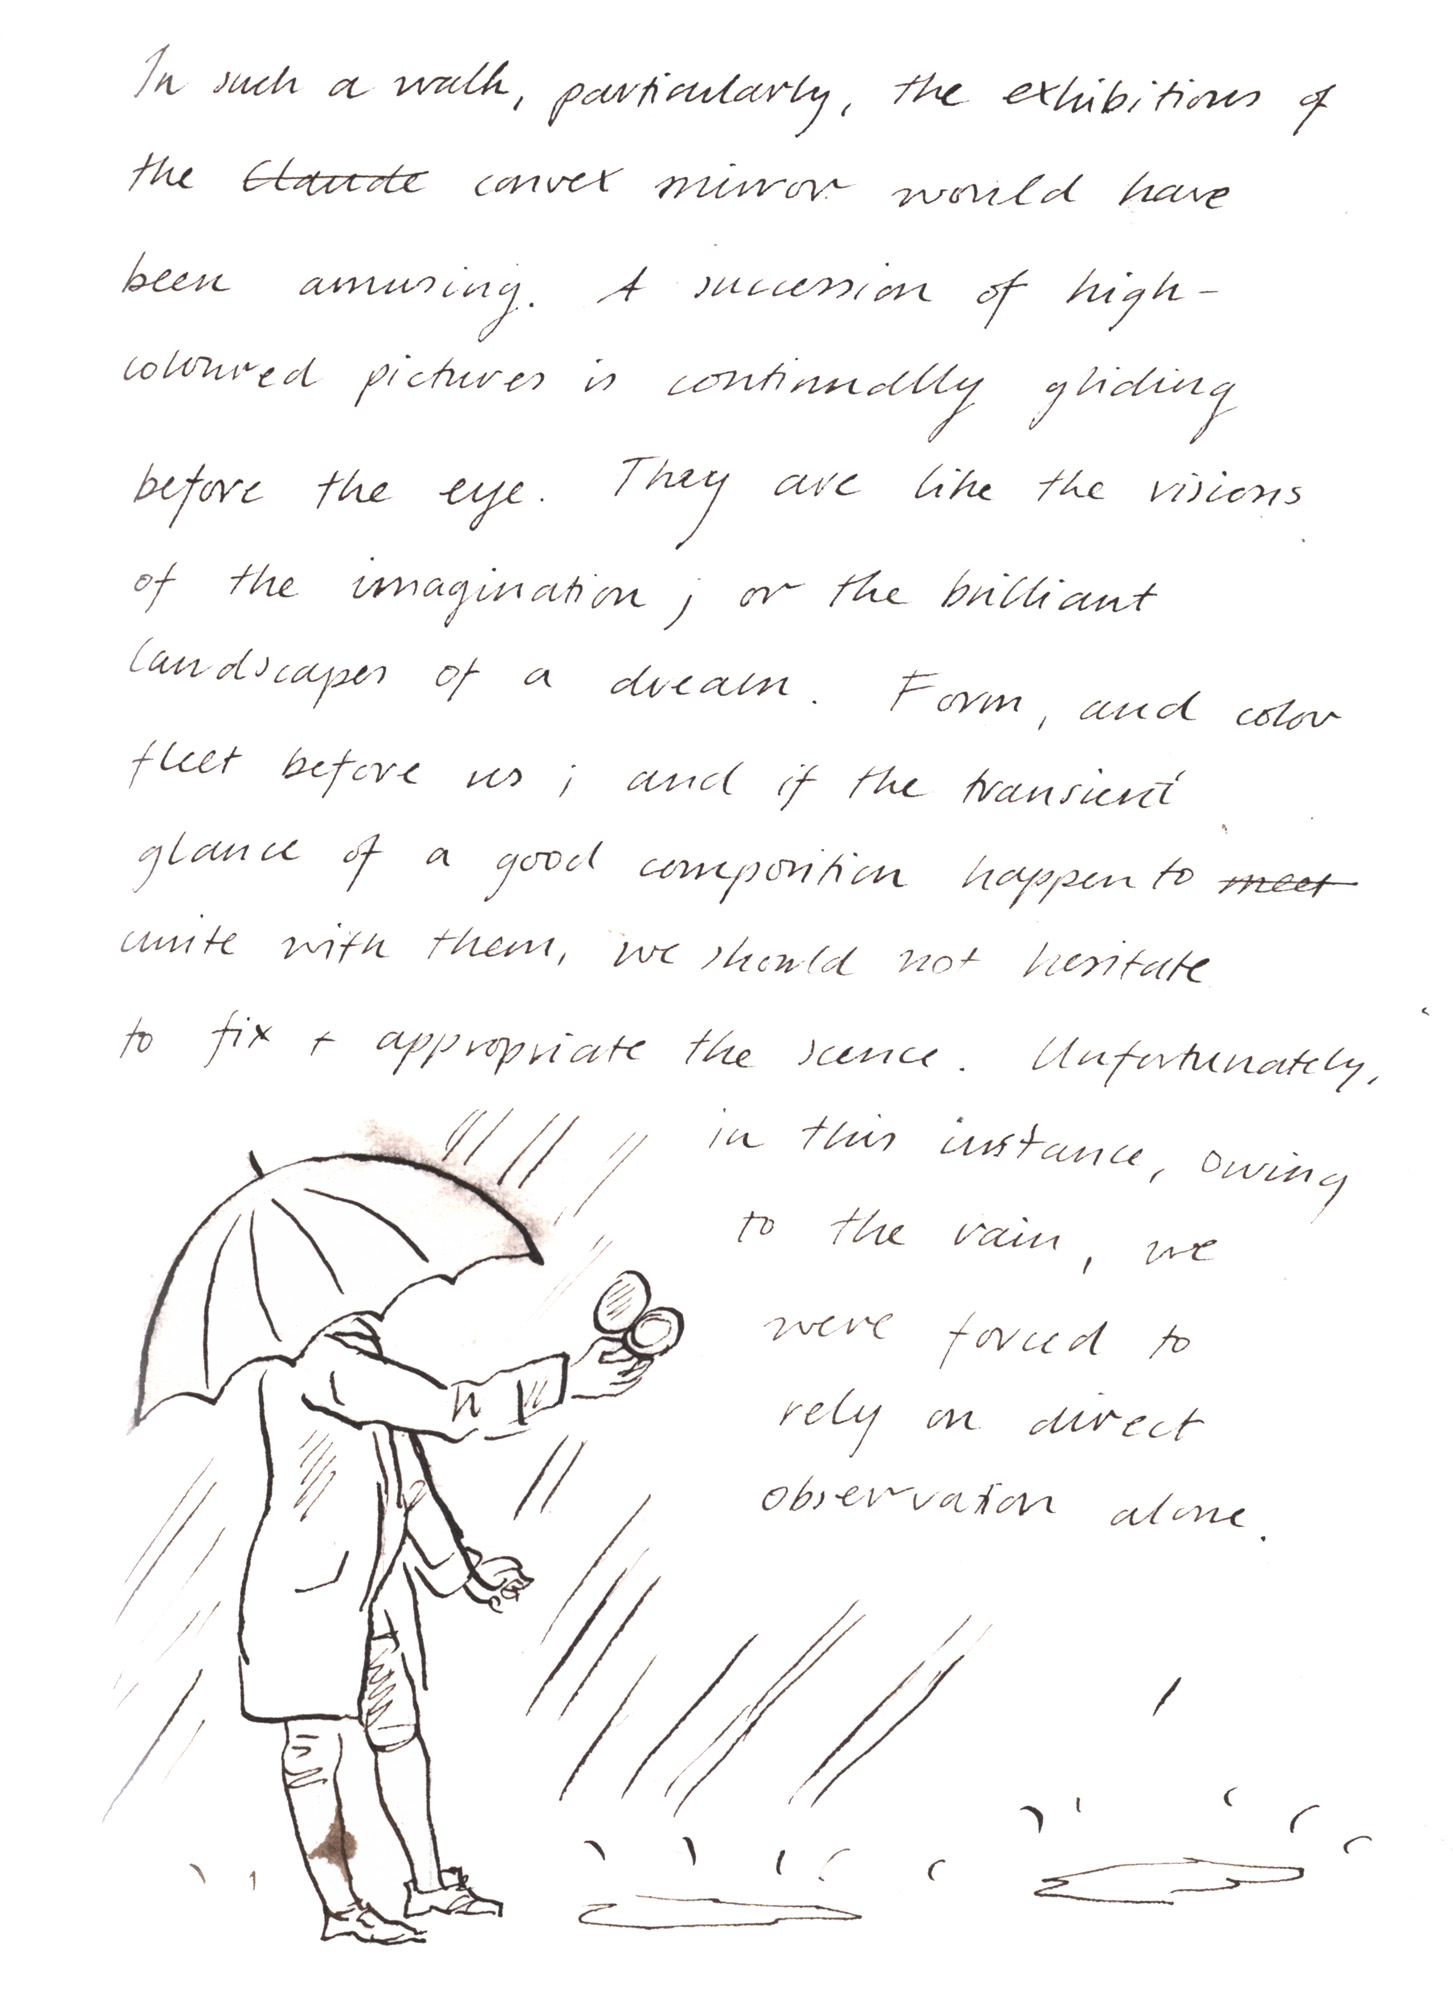 In such a walk, particularly, the exhibitions of
the Claude convex mirror would have
been amusing. A succession of high-
coloured pictures is continually gliding
before the eye. They are like the visions
of the imagination; or the brilliant
landscapes of a dream. Form, and color
fleet before us; and if the transient
glance of a good composition happen to meet
unite with them, we should not hesitate
to fix + appropriate the scence. Unfortunately,
in this instance, owing
to the rain, we
were forced to
rely on direct
observation alone.